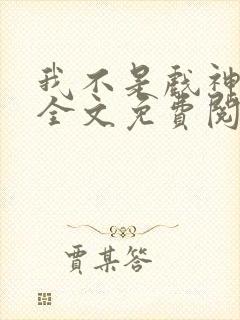 我不是戲神
全文免費閱
賈某答